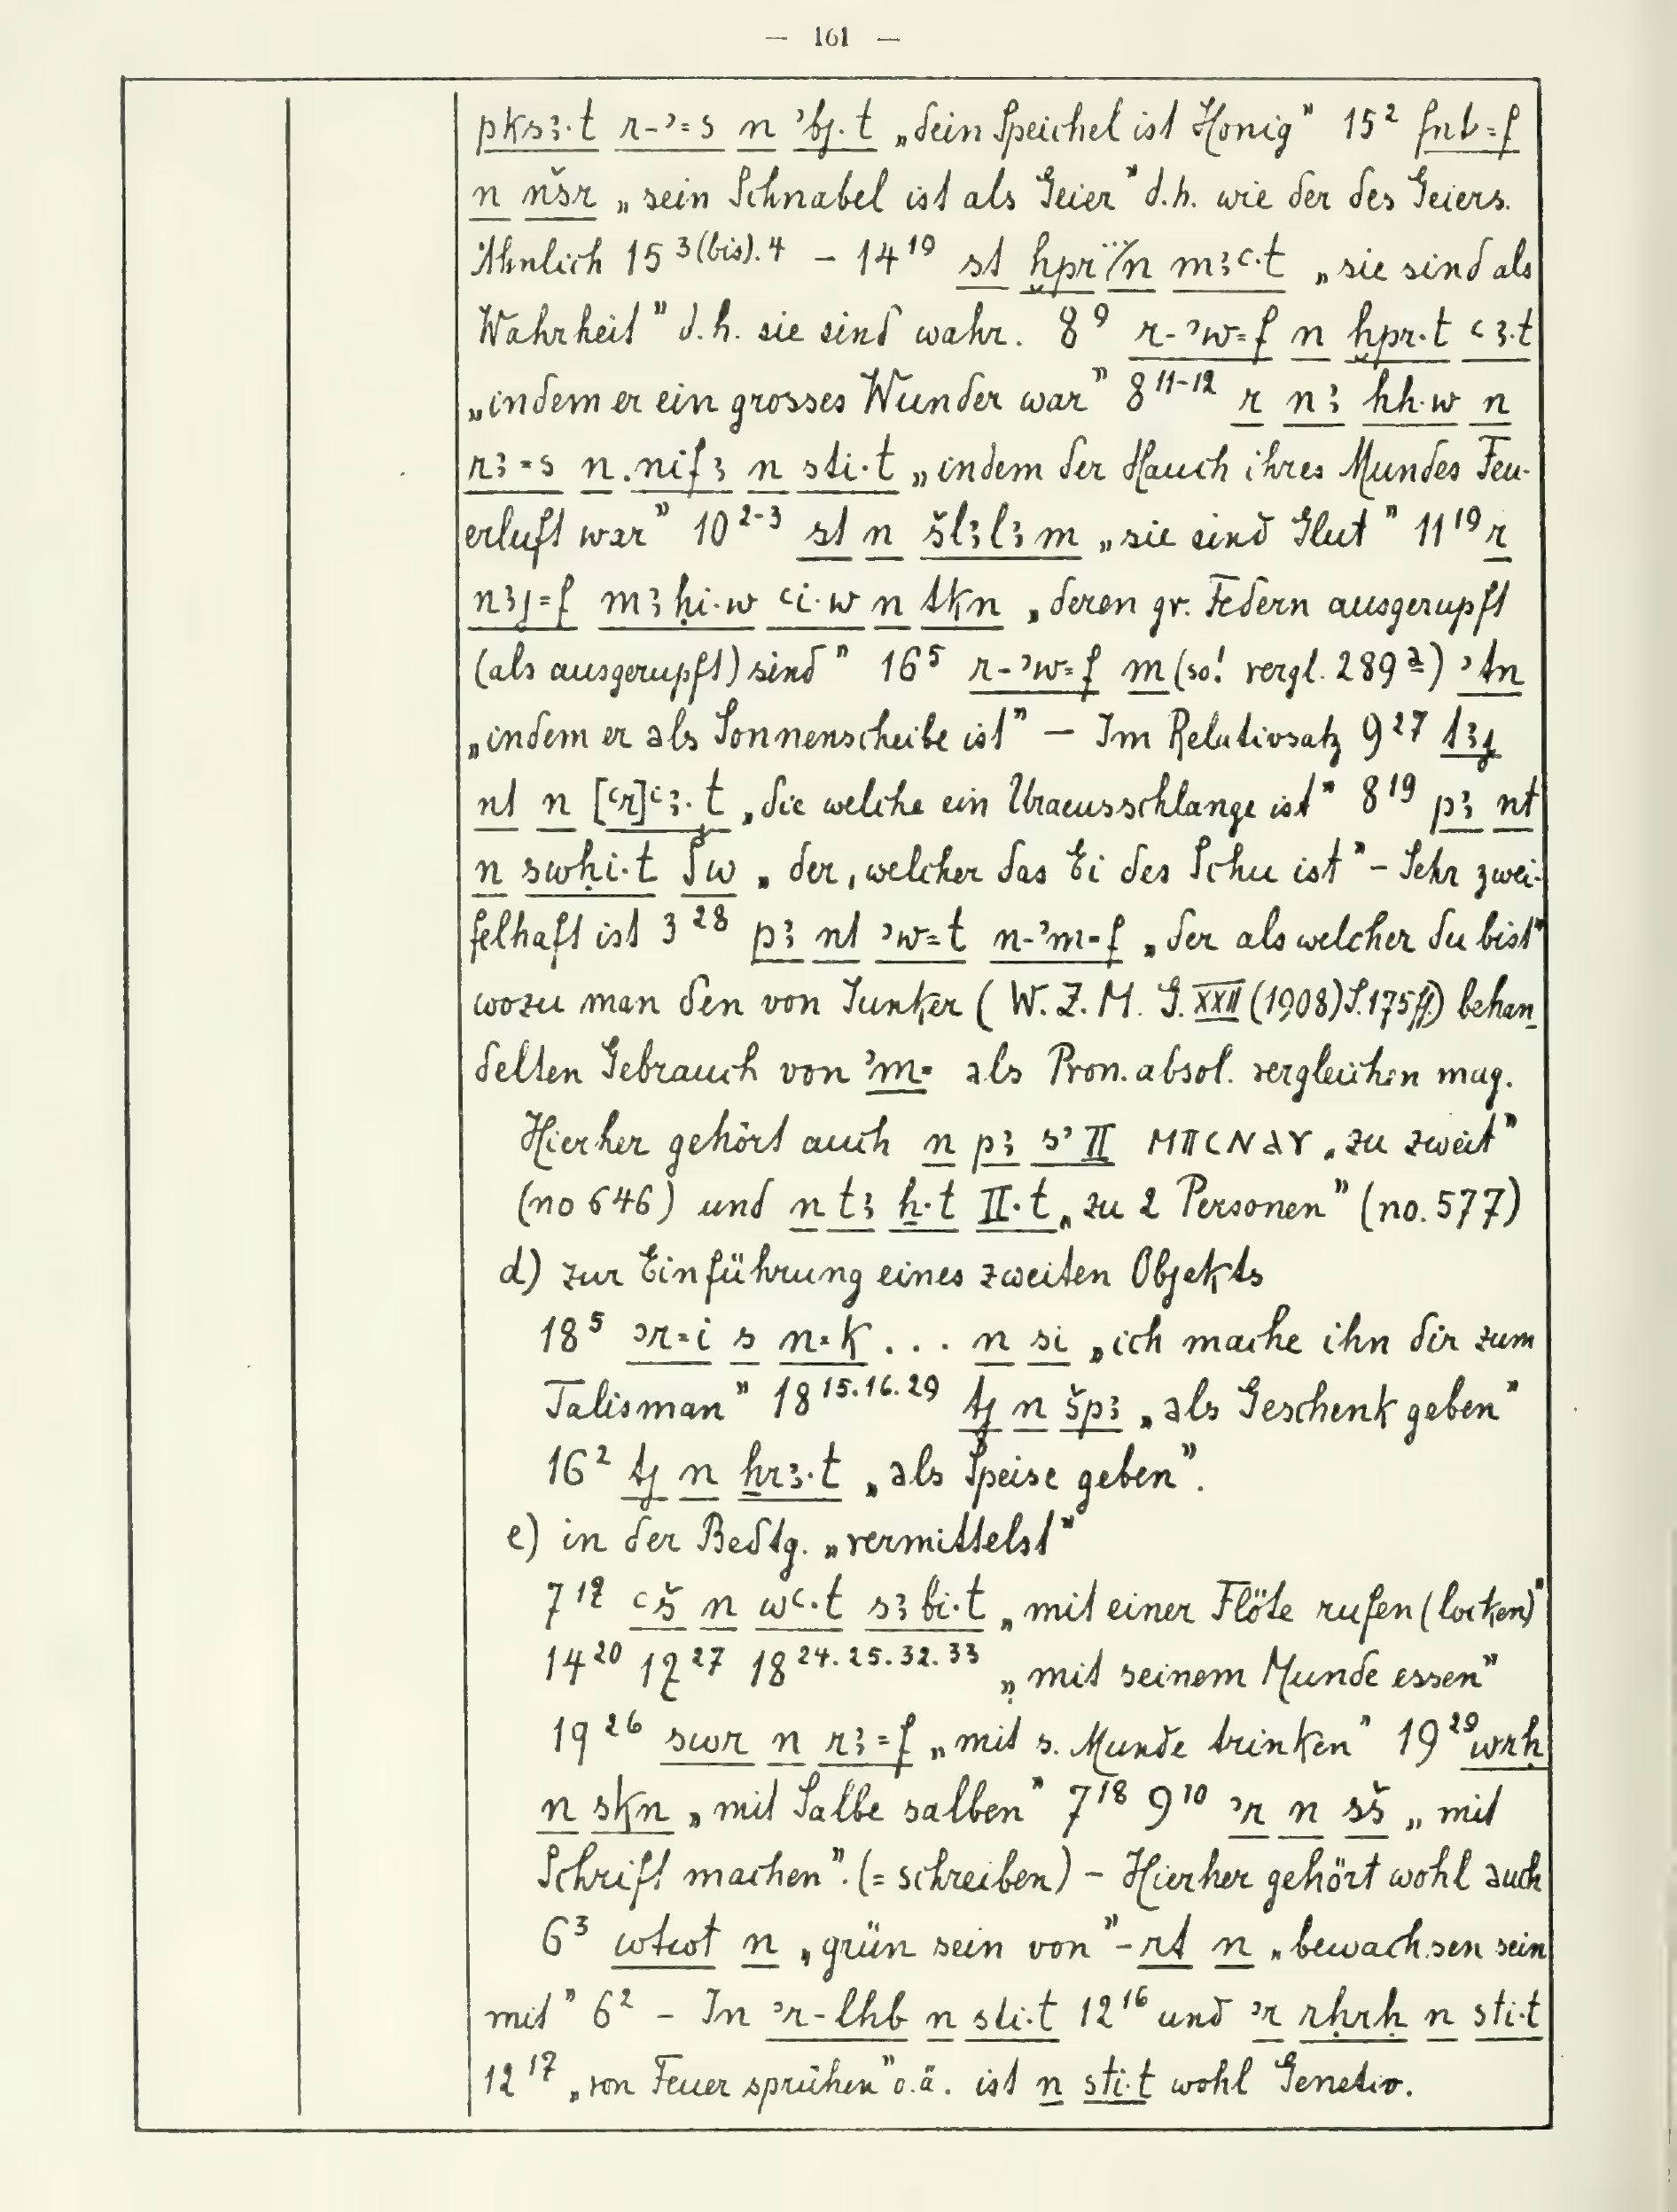 — 161 —
pksꜣ·t r-ʾ=s n ʾbj·t „dein Speichel ist Honig" 15² fnt=f
n nšr „sein Schnabel ist als Geier" d.h. wie der des Geiers.
Ähnlich 15 ³⁽ᵇⁱˢ⁾·⁴ – 14¹⁹ st ḫpr n mꜣꜥ·t „sie sind als
Wahrheit" d.h. sie sind wahr. 8⁹ r-ʾw=f n ḫpr·t ꜥꜣ·t
„indem er ein grosses Wunder war" 8¹¹⁻¹² r nꜣ hh·w n
rꜣ=s n nifꜣ n sti·t „indem der Hauch ihres Mundes Feu-
erluft war" 10²⁻³ st n šlꜣlꜣm „sie sind Glut" 11¹⁹ r
nꜣj=f mꜣḥi·w ꜥi·w n tkn „deren gr. Federn ausgerupft
(als ausgerupft) sind" 16⁵ r-ʾw=f m (so! vergl. 289a) ʾtn
„indem er als Sonnenscheibe ist" – Im Relativsatz 9²⁷ tꜣj
nt n [ꜥr]ꜥꜣ·t „die welche ein Uraeusschlange ist" 8¹⁹ pꜣ nt
n swḥi·t Šw „der, welcher das Ei des Schu ist" – Sehr zwei-
felhaft ist 3²⁸ pꜣ nt ʾw=t n-ʾm=f „der als welcher du bist"
wozu man den von Junker (W.Z.M. G. XXII (1908) S. 175ff) behan-
delten Gebrauch von ʾm= als Pron. absol. vergleichen mag.
Hierher gehört auch n pꜣ sʾ II ⲙⲡⲥⲛⲁⲩ „zu zweit"
(no 646) und n tꜣ ẖ·t II·t „zu 2 Personen" (no. 577)
d) zur Einführung eines zweiten Objekts
18⁵ ʾr=i s n=k ... n si „ich mache ihn dir zum
Talisman" 18¹⁵·¹⁶·²⁹ tj n špꜣ „als Geschenk geben"
16² tj n ẖrꜣ·t „als Speise geben".
e) in der Bedtg. „vermittelst"
7¹² ꜥš n wꜥ·t sꜣbi·t „mit einer Flöte rufen (locken)"
14²⁰ 12²⁷ 18²⁴·²⁵·³²·³³ „mit seinem Munde essen"
19²⁶ swr n rꜣ=f „mit s. Munde trinken" 19²⁹ wrḥ
n skn „mit Salbe salben" 7¹⁸ 9¹⁰ ʾr n sš „mit
Schrift machen". (= schreiben) – Hierher gehört wohl auch
6³ wtwt n „grün sein von" – rt n „bewachsen sein
mit" 6² – In ʾr-lhb n sti·t 12¹⁶ und ʾr rḥrḥ n sti·t
12¹⁷ „von Feuer sprühen" o.ä. ist n sti·t wohl Genetiv.